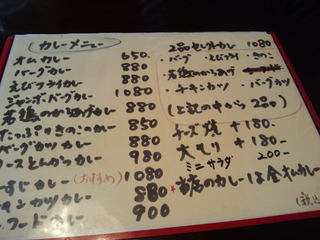 カレーメニュー
オムカレー 650
バーグカレー 880
えびフライカレー 880
ジャンボバーグカレー 1080
若鶏のからあげカレー 880
たっぷりきのこカレー 850
バーグカツカレー 880
ースとんかつカレー 980
すじカレー(おすすめ) 1080
キンカツカレー 880
フードカレー 900
2品セレクトカレー 1080
・バーグ ・えびフライ ・きのこ
・若鶏のからあげ
・チキンカツ ・バーグカツ
(上記の中から2品)
チーズ焼 +180-
大もり +180-
ミニサラダ 200-
*当店のカレーは全オムカレー
(税込